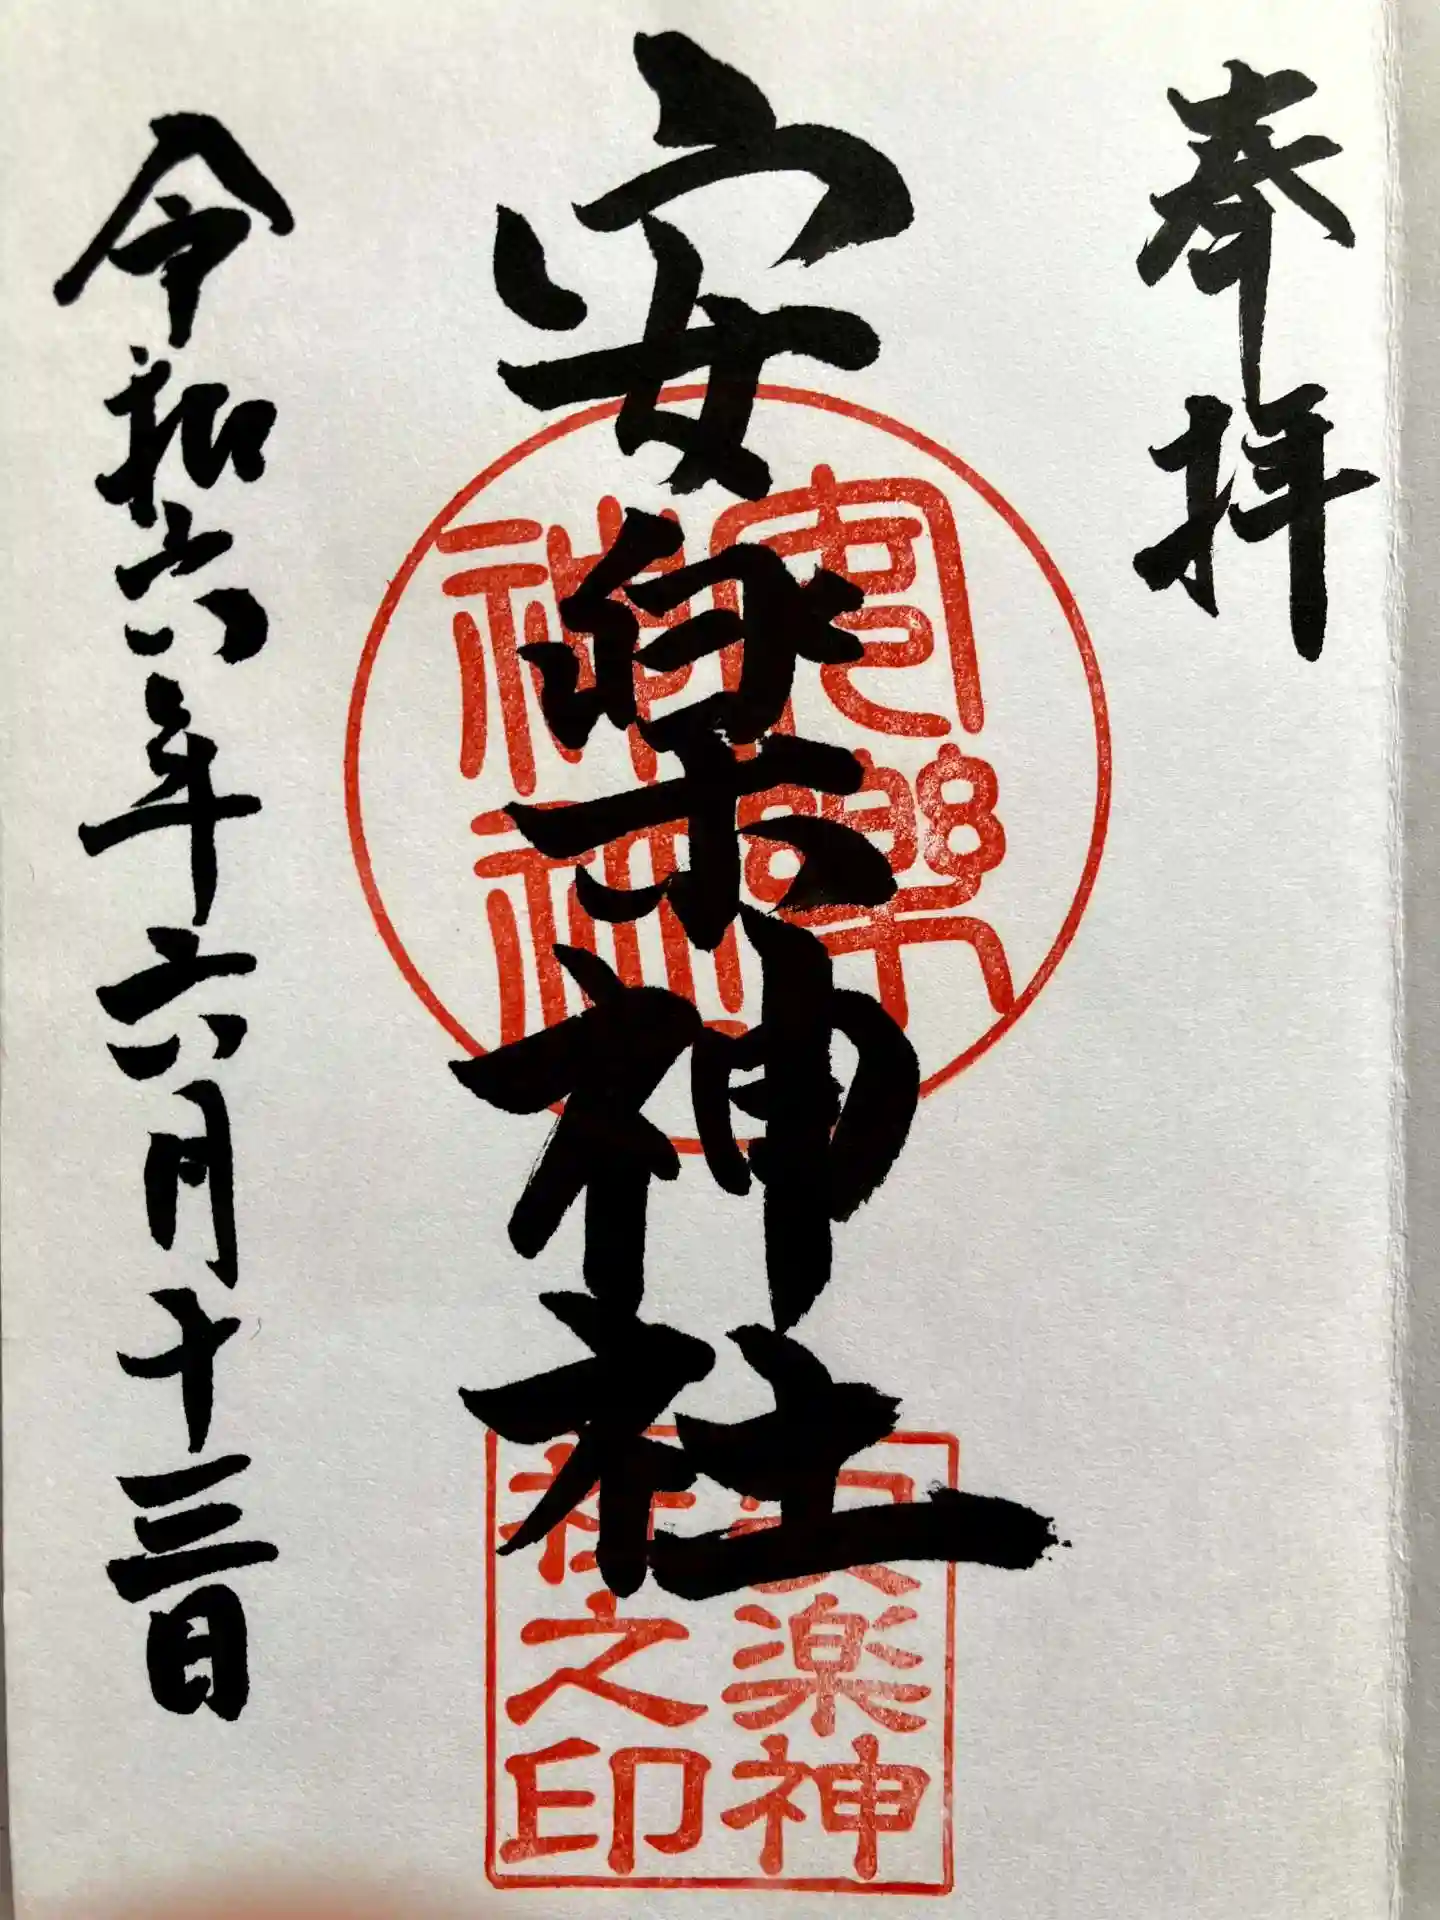 奉拝
安楽神社
安樂
神社
安楽神
社之印
令和六年六月十三日